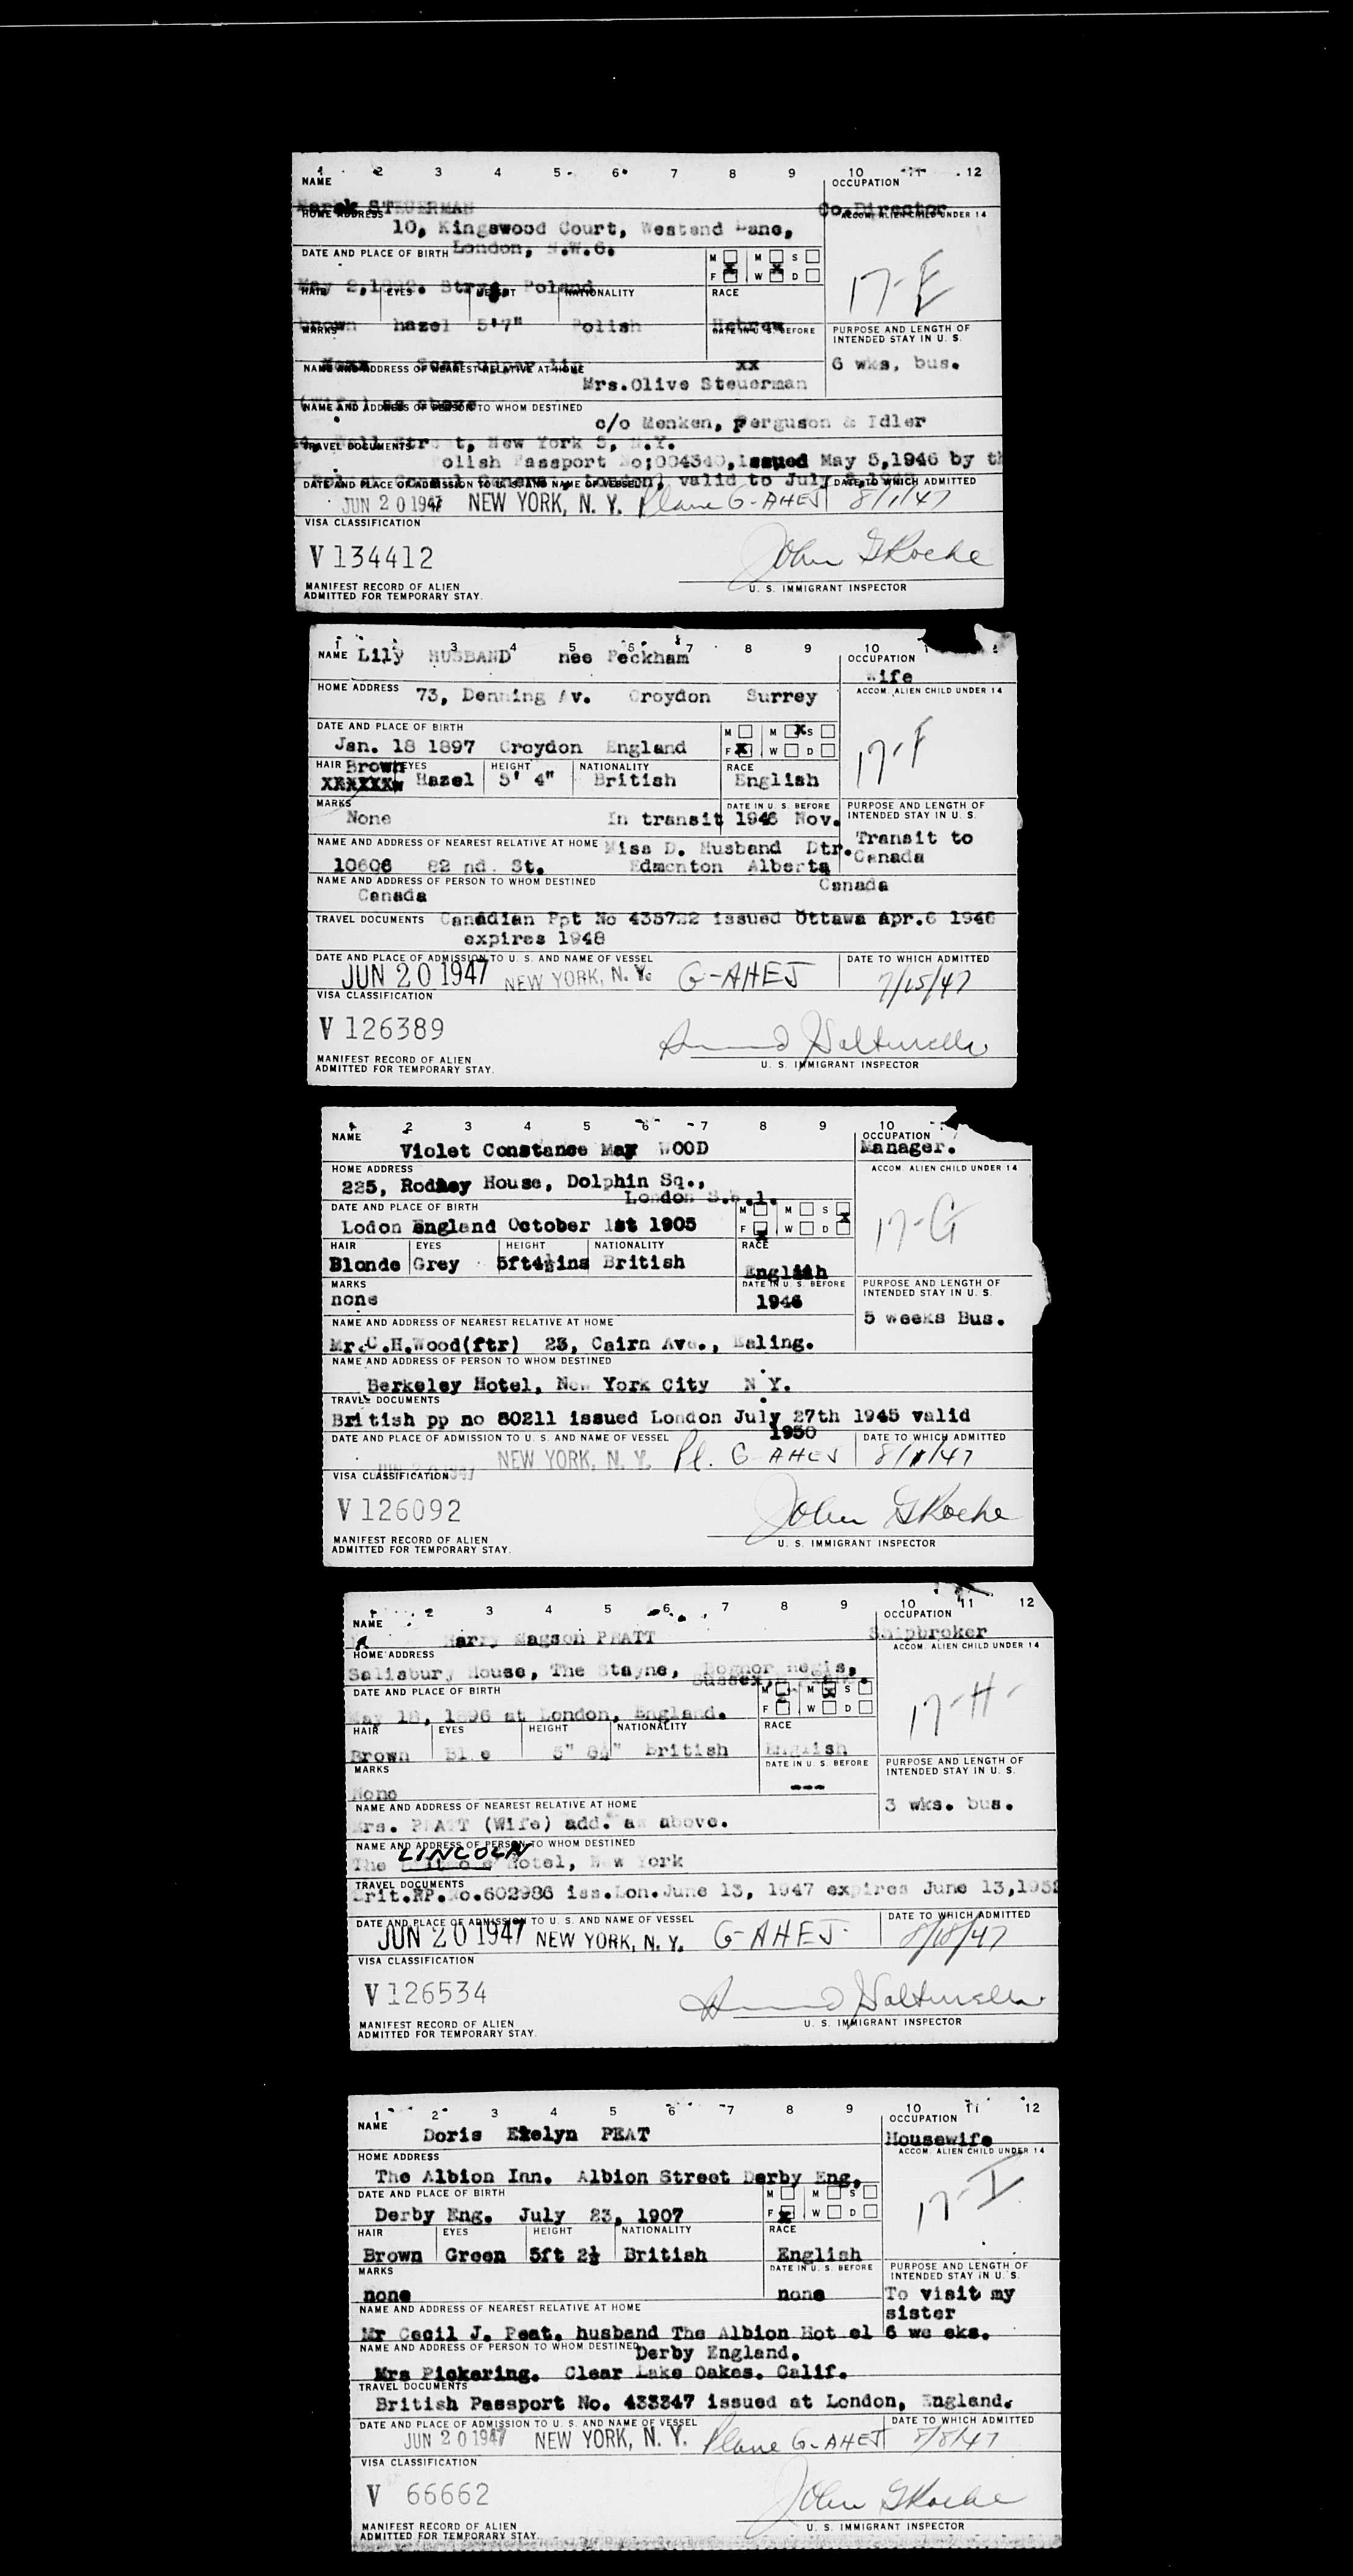 1 2 3 4 5 6 7 8 9 10 11 12
NAME OCCUPATION
Marek STEUERMAN Co.Director
HOME ADDRESS ACCOM. ALIEN CHILD UNDER 14
10, Kingswood Court, Westend Lane,
DATE AND PLACE OF BIRTH London, N.W.6.
M M S
F W D
17-E
May 2,1892. Poland
HAIR EYES HEIGHT NATIONALITY RACE
brown hazel 5'7" Polish Hebrew
MARKS DATE IN U. S. BEFORE PURPOSE AND LENGTH OF INTENDED STAY IN U. S.
Scar upper lip xx 6 wks, bus.
NAME AND ADDRESS OF NEAREST RELATIVE AT HOME
Mrs.Olive Steuerman
(wife) as above
NAME AND ADDRESS OF PERSON TO WHOM DESTINED
c/o Menken, Ferguson & Idler
Wall Street, New York 5, N.Y.
TRAVEL DOCUMENTS
Polish Passport No:004340, issued May 5,1946 by th
London) valid to July
DATE AND PLACE OF ADMISSION TO U. S. AND NAME OF VESSEL DATE TO WHICH ADMITTED
JUN 20 1947 NEW YORK, N. Y. Plane G-AHEJ 8/1/47
VISA CLASSIFICATION
V 134412 John G Roche
MANIFEST RECORD OF ALIEN
ADMITTED FOR TEMPORARY STAY. U. S. IMMIGRANT INSPECTOR
1 3 4 5 6 7 8 9 10
NAME Lily HUSBAND nee Peckham OCCUPATION
Wife
HOME ADDRESS 73, Denning Av. Croydon Surrey ACCOM. ALIEN CHILD UNDER 14
DATE AND PLACE OF BIRTH
M M X S
Jan. 18 1897 Croydon England F X W D 17-F
HAIR Brown EYES HEIGHT NATIONALITY RACE
Hazel 5' 4" British English
MARKS DATE IN U. S. BEFORE PURPOSE AND LENGTH OF INTENDED STAY IN U. S.
None In transit 1946 Nov.
Transit to
Canada
NAME AND ADDRESS OF NEAREST RELATIVE AT HOME Miss D. Husband Dtr.
10606 82 nd. St. Edmonton Alberta
NAME AND ADDRESS OF PERSON TO WHOM DESTINED Canada
Canada
TRAVEL DOCUMENTS Canadian Ppt No 435722 issued Ottawa Apr.6 1946
expires 1948
DATE AND PLACE OF ADMISSION TO U. S. AND NAME OF VESSEL DATE TO WHICH ADMITTED
JUN 20 1947 NEW YORK, N. Y. G-AHEJ 7/15/47
VISA CLASSIFICATION
V 126389
MANIFEST RECORD OF ALIEN
ADMITTED FOR TEMPORARY STAY. U. S. IMMIGRANT INSPECTOR
1 2 3 4 5 6 7 8 9 10
NAME OCCUPATION
Violet Constance May WOOD Manager.
HOME ADDRESS ACCOM. ALIEN CHILD UNDER 14
225, Rodney House, Dolphin Sq.,
London S.W.1.
DATE AND PLACE OF BIRTH M M S X
Lodon England October 1st 1905 F X W D 17-G
HAIR EYES HEIGHT NATIONALITY RACE
Blonde Grey 5ft4½ins British English
MARKS DATE IN U. S. BEFORE PURPOSE AND LENGTH OF INTENDED STAY IN U. S.
none 1946
5 weeks Bus.
NAME AND ADDRESS OF NEAREST RELATIVE AT HOME
Mr.C.H.Wood(ftr) 23, Cairn Ave., Ealing.
NAME AND ADDRESS OF PERSON TO WHOM DESTINED
Berkeley Hotel, New York City N Y.
TRAVEL DOCUMENTS
British pp no 80211 issued London July 27th 1945 valid
1950
DATE AND PLACE OF ADMISSION TO U. S. AND NAME OF VESSEL DATE TO WHICH ADMITTED
JUN 20 1947 NEW YORK, N. Y. Pl. G AHEJ 8/1/47
VISA CLASSIFICATION
V 126092 John G Roche
MANIFEST RECORD OF ALIEN
ADMITTED FOR TEMPORARY STAY. U. S. IMMIGRANT INSPECTOR
1 2 3 4 5 6 7 8 9 10 11 12
NAME OCCUPATION
Harry Magson PRATT Shipbroker
HOME ADDRESS ACCOM. ALIEN CHILD UNDER 14
Salisbury House, The Stayne, Bognor Regis,
Sussex,
DATE AND PLACE OF BIRTH M M X S
F W D 17-H-
May 18, 1896 at London, England.
HAIR EYES HEIGHT NATIONALITY RACE
Brown Blue 5" 8½" British English
MARKS DATE IN U. S. BEFORE PURPOSE AND LENGTH OF INTENDED STAY IN U. S.
None ---
3 wks. bus.
NAME AND ADDRESS OF NEAREST RELATIVE AT HOME
Mrs. PRATT (Wife) add. as above.
NAME AND ADDRESS OF PERSON TO WHOM DESTINED
LINCOLN
The Hotel, New York
TRAVEL DOCUMENTS
Brit.PP.No.602986 iss.Lon.June 13, 1947 expires June 13,1952
DATE AND PLACE OF ADMISSION TO U. S. AND NAME OF VESSEL DATE TO WHICH ADMITTED
JUN 20 1947 NEW YORK, N. Y. G-AHEJ 8/18/47
VISA CLASSIFICATION
V 126534
MANIFEST RECORD OF ALIEN
ADMITTED FOR TEMPORARY STAY. U. S. IMMIGRANT INSPECTOR
1 2 3 4 5 6 7 8 9 10 11 12
NAME OCCUPATION
Doris Evelyn PEAT Housewife
HOME ADDRESS ACCOM. ALIEN CHILD UNDER 14
The Albion Inn. Albion Street Derby Eng.
DATE AND PLACE OF BIRTH M M S
Derby Eng. July 23, 1907 F X W D 17-I
HAIR EYES HEIGHT NATIONALITY RACE
Brown Green 5ft 2½ British English
MARKS DATE IN U. S. BEFORE PURPOSE AND LENGTH OF INTENDED STAY IN U. S.
none none To visit my
sister
NAME AND ADDRESS OF NEAREST RELATIVE AT HOME
Mr Cecil J. Peat. husband The Albion Hot el 6 we eks.
NAME AND ADDRESS OF PERSON TO WHOM DESTINED Derby England.
Mrs Pickering. Clear Lake Oakes. Calif.
TRAVEL DOCUMENTS
British Passport No. 433347 issued at London, England.
DATE AND PLACE OF ADMISSION TO U. S. AND NAME OF VESSEL DATE TO WHICH ADMITTED
JUN 20 1947 NEW YORK, N. Y. Plane G-AHEJ 8/8/47
VISA CLASSIFICATION
V 66662 John G Roche
MANIFEST RECORD OF ALIEN
ADMITTED FOR TEMPORARY STAY. U. S. IMMIGRANT INSPECTOR